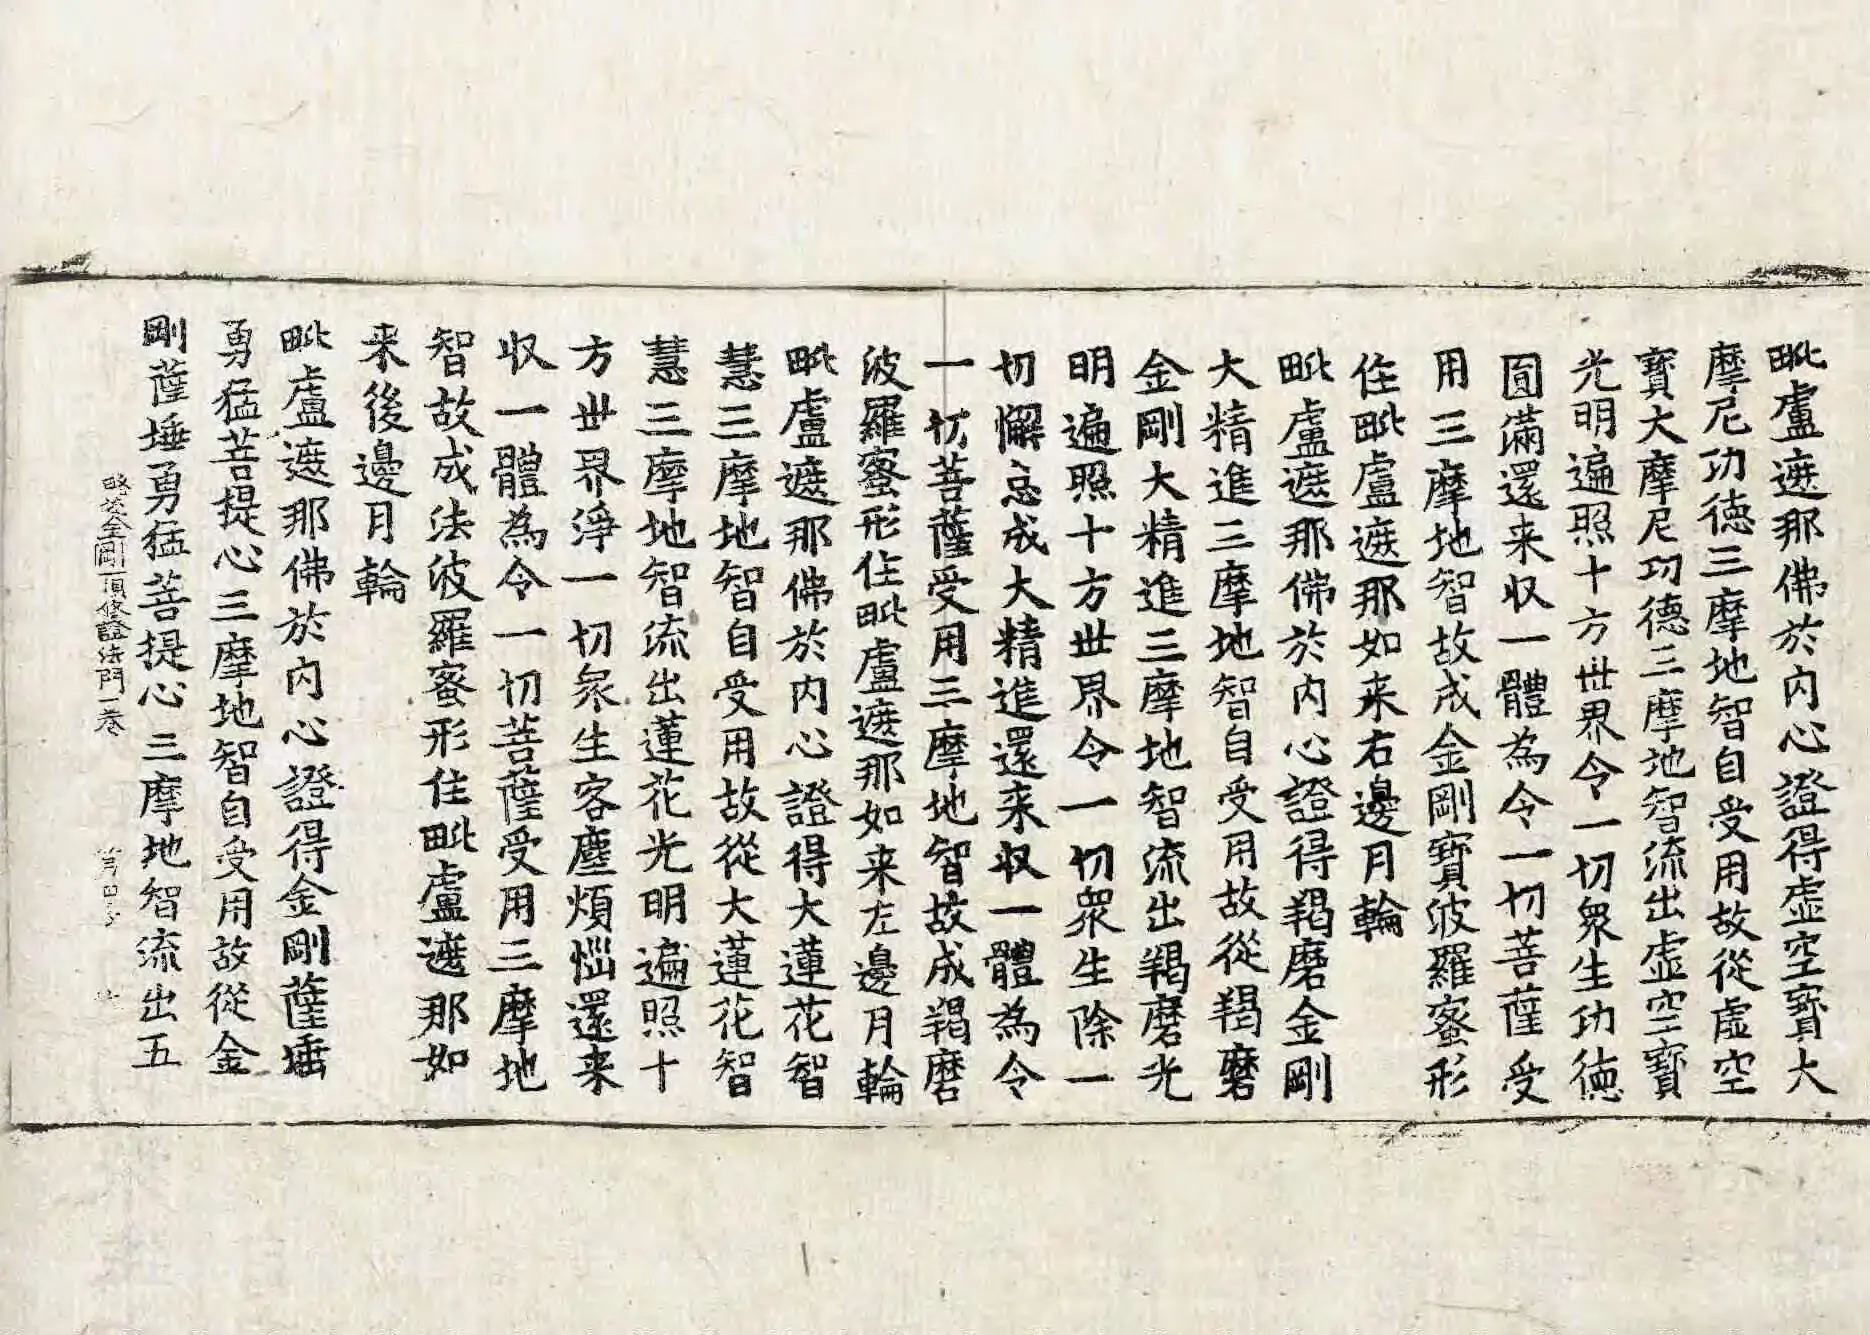 毗盧遮那佛於内心證得虛空寶大
摩尼功德三摩地智自受用故從虛空
寶大摩尼功德三摩地智流出虛空寶
光明遍照十方世界令一切衆生功德
圎滿還来収一體為令一切菩薩受
用三摩地智故成金剛寶波羅蜜形
住毗盧遮那如来右邊月輪
毗盧遮那佛於内心證得羯磨金剛
大精進三摩地智自受用故從羯磨
金剛大精進三摩地智流出羯磨光
明遍照十方世界令一切衆生除一
切懈怠成大精進還来収一體為令
一切菩薩受用三摩地智故成羯磨
波羅蜜形住毗盧遮那如来左邊月輪
毗盧遮那佛於内心證得大蓮花智
慧三摩地智自受用故從大蓮花智
慧三摩地智流出蓮花光明遍照十
方世界淨一切衆生客塵煩惱還来
収一體為令一切菩薩受用三摩地
智故成法波羅蜜形住毗盧遮那如
来後邊月輪
毗盧遮那佛於内心證得金剛薩埵
勇猛菩提心三摩地智自受用故從金
剛薩埵勇猛菩提心三摩地智流出五
略述金剛頂修證法門一卷